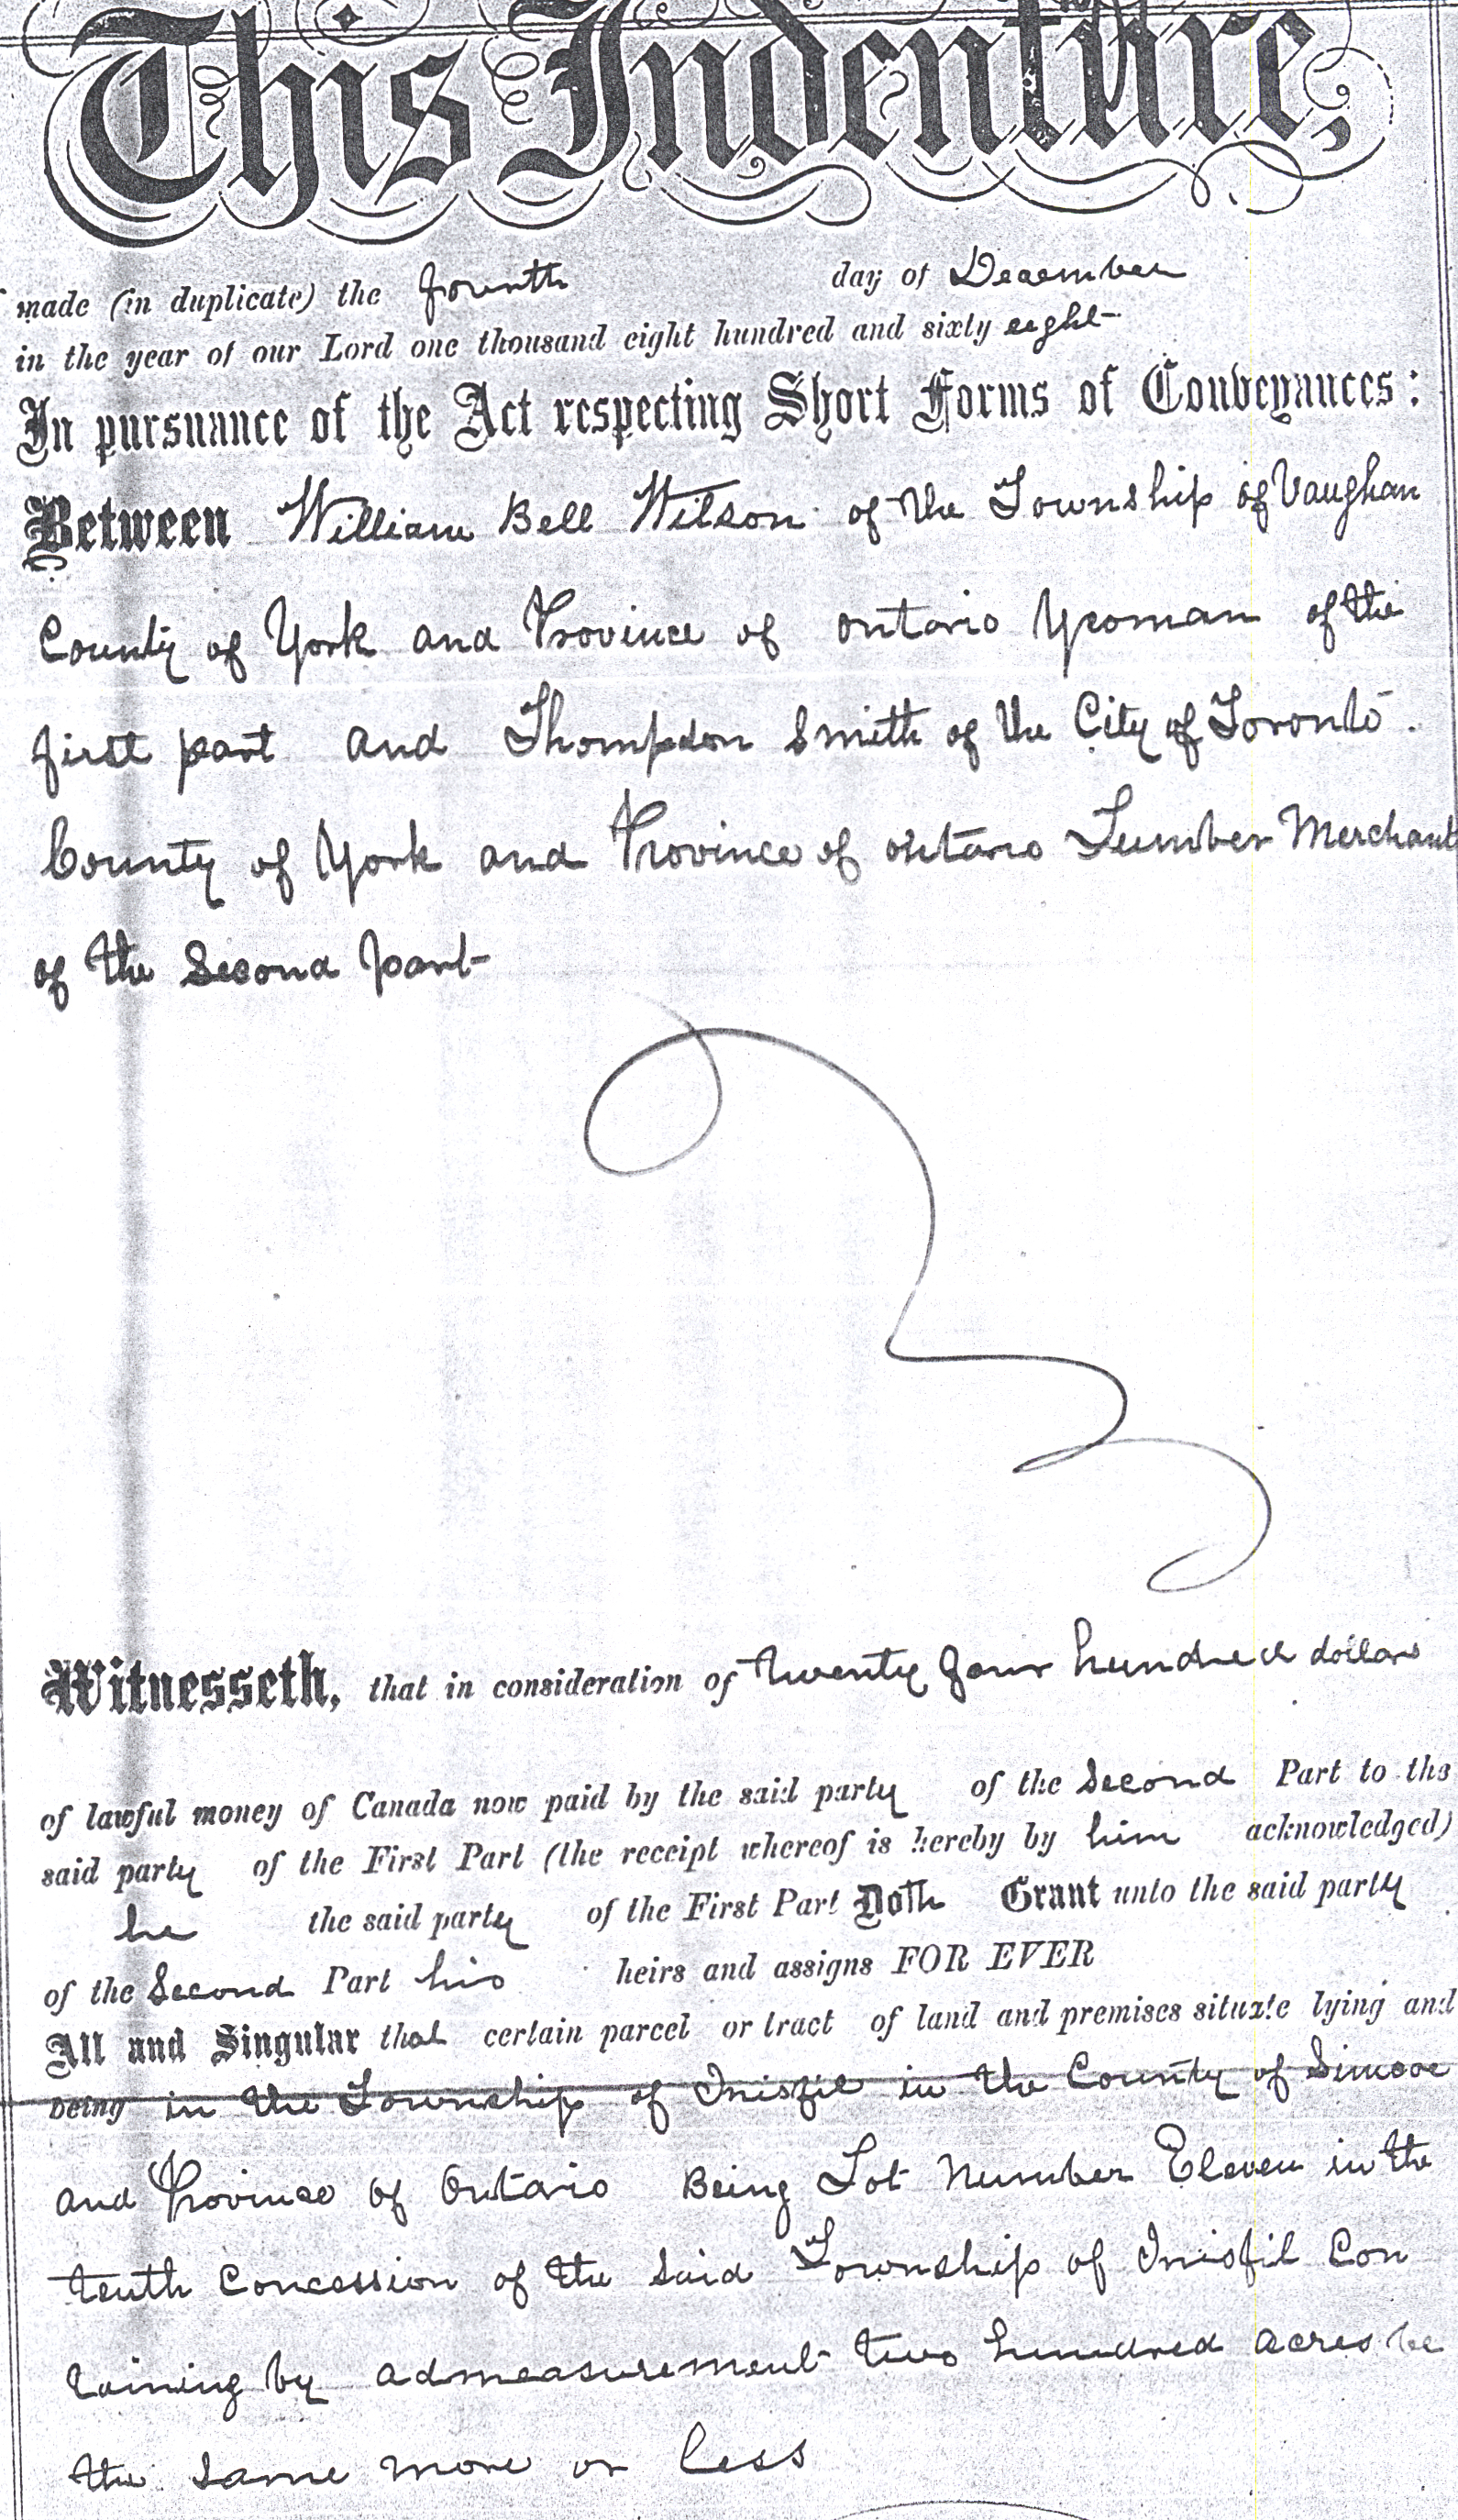 This Indenture,
made (in duplicate) the fourth day of December
in the year of our Lord one thousand eight hundred and sixty eight
In pursuance of the Act respecting Short Forms of Conveyances:
Between William Bell Wilson of the Township of Vaughan
County of York and Province of Ontario Yeoman of the
first part and Thompson Smith of the City of Toronto.
County of York and Province of Ontario Lumber Merchant
of the Second part
Witnesseth, that in consideration of twenty four hundred dollars
of lawful money of Canada now paid by the said party of the Second Part to the
said party of the First Part (the receipt whereof is hereby by him acknowledged)
he the said party of the First Part Doth Grant unto the said party
of the Second Part his heirs and assigns FOR EVER
All and Singular that certain parcel or tract of land and premises situate lying and
being in the Township of Inisfil in the County of Simcoe
and Province of Ontario Being Lot Number Eleven in the
tenth Concession of the Said Township of Inisfil Con
taining by admeasurement two hundred acres be
the same more or less